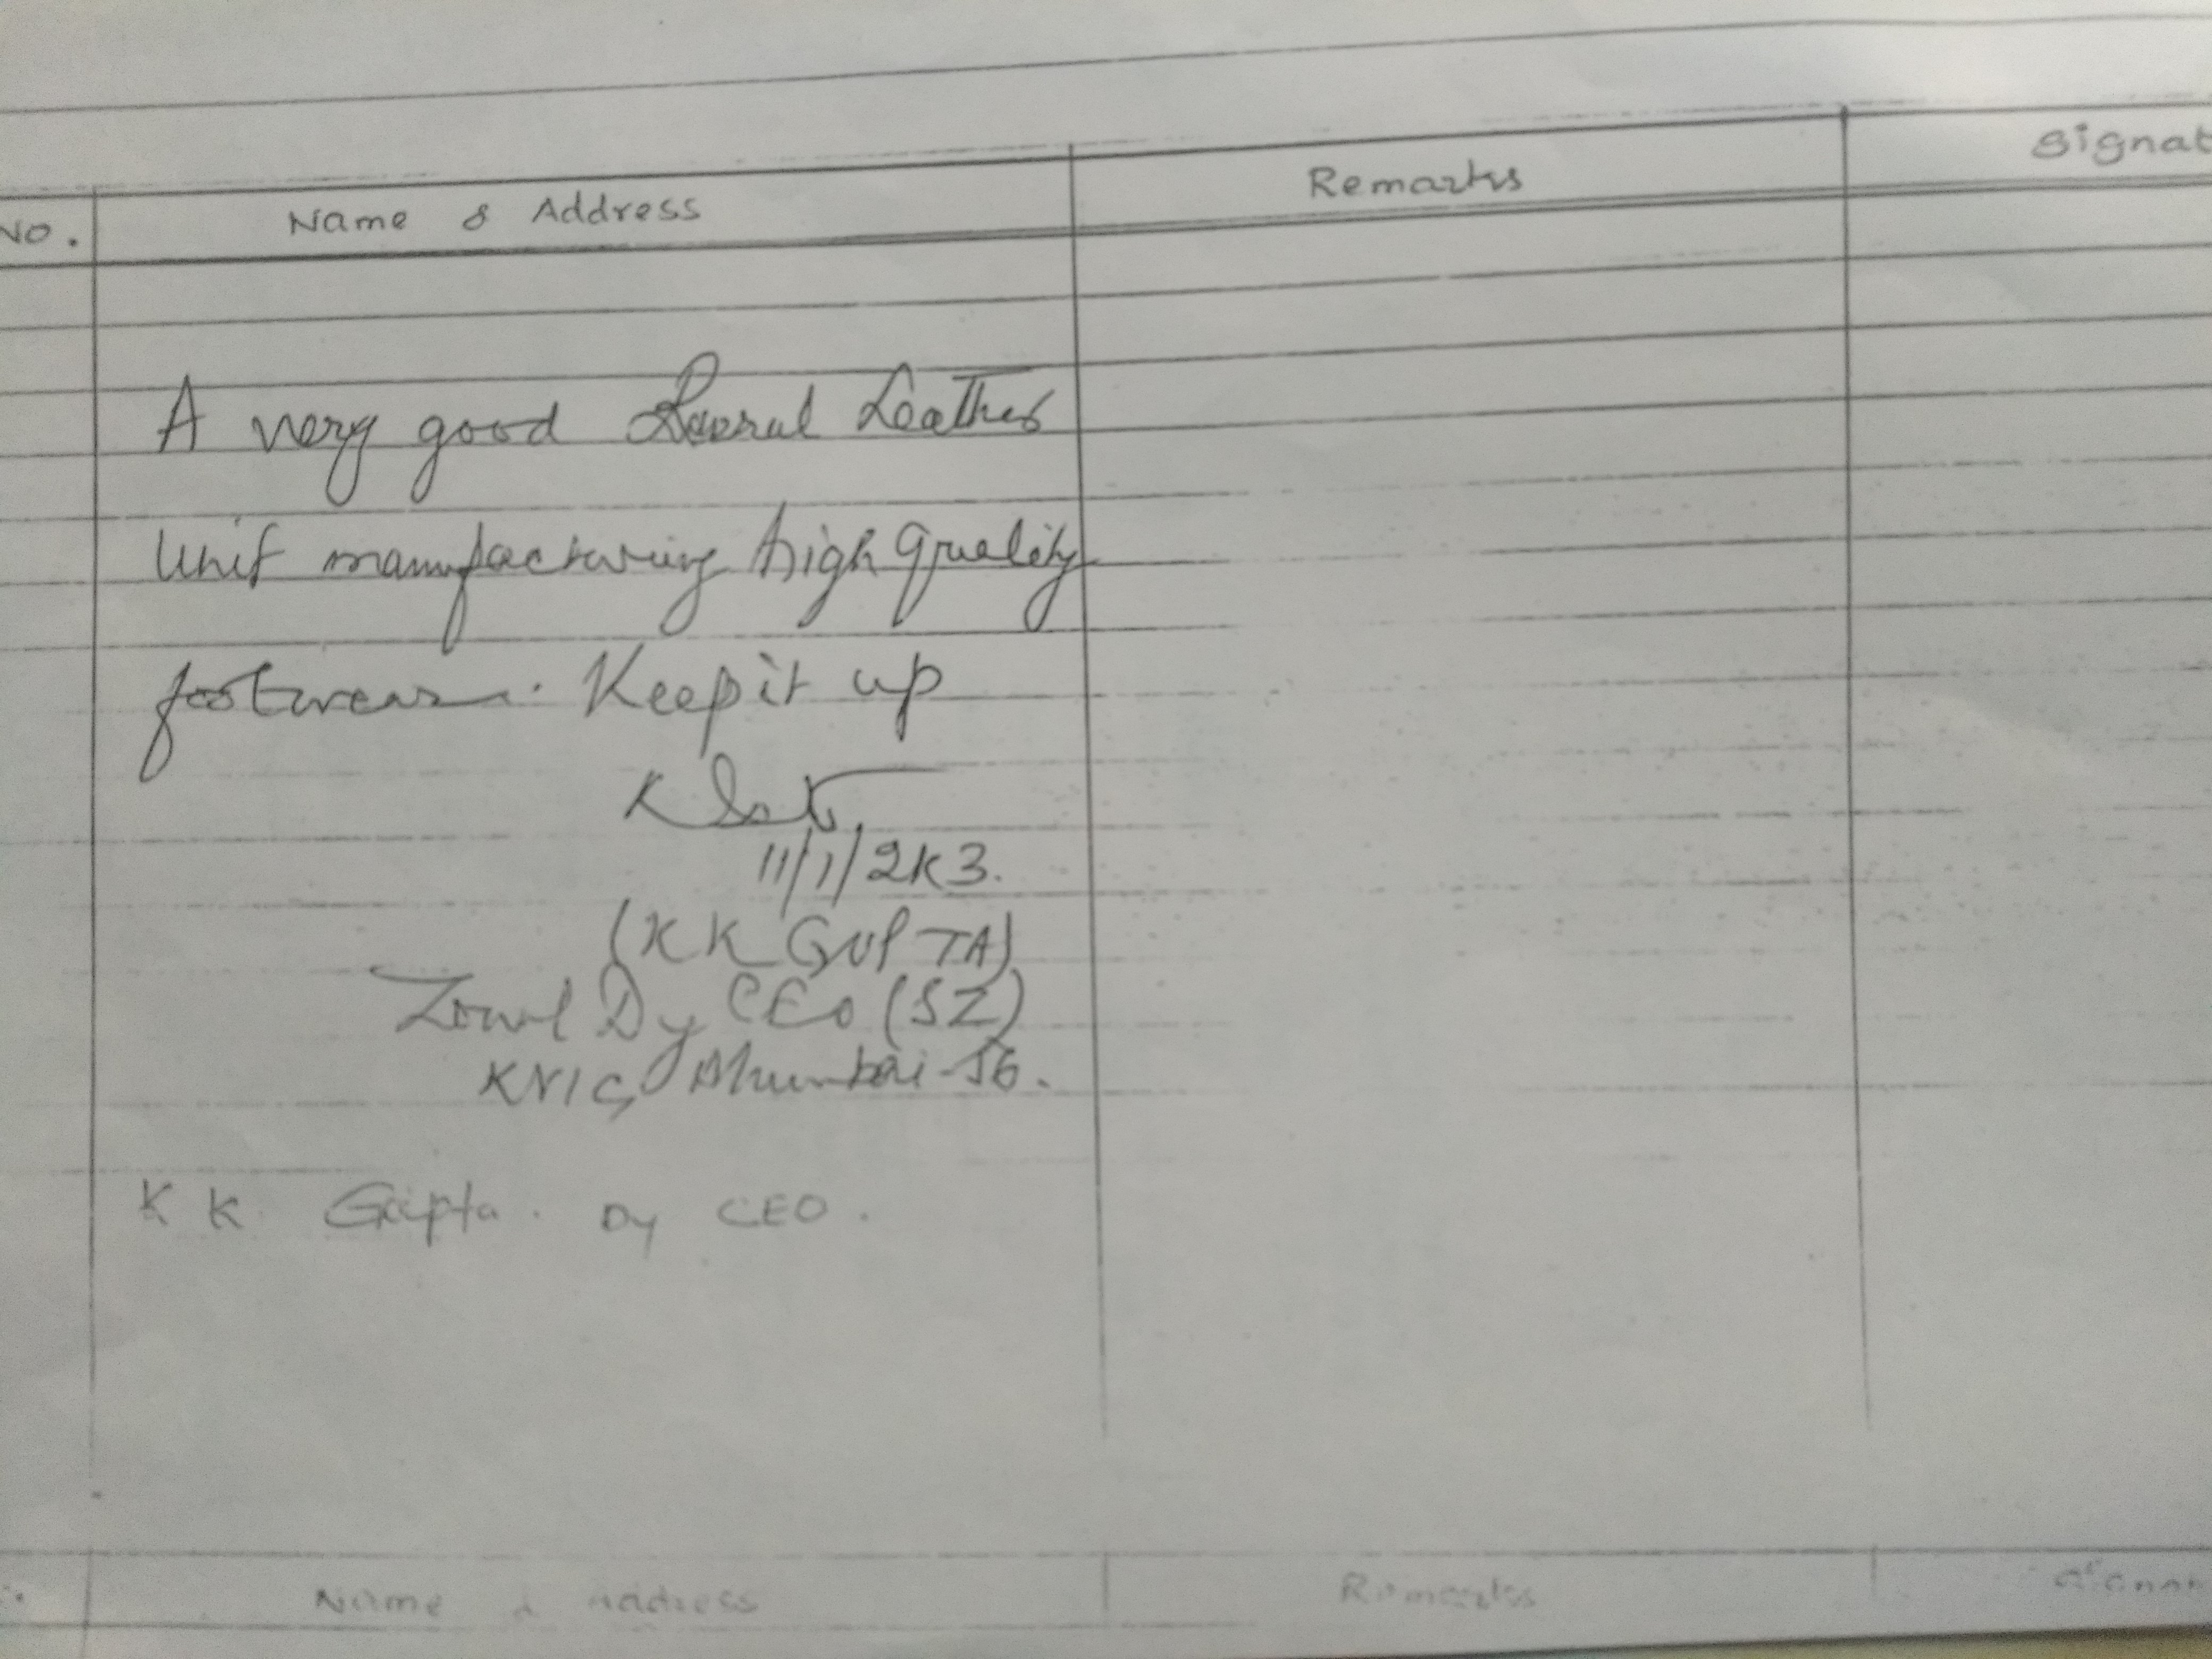 No. Name & Address Remarks Signat
A very good Leather
Unit manufacturing high quality
footwear. Keep it up
11/1/2K3.
(K K GUPTA)
Zonal Dy CEO (SZ)
KVIC, Mumbai-56.
K K Gupta. Dy CEO.
Name & Address Remarks